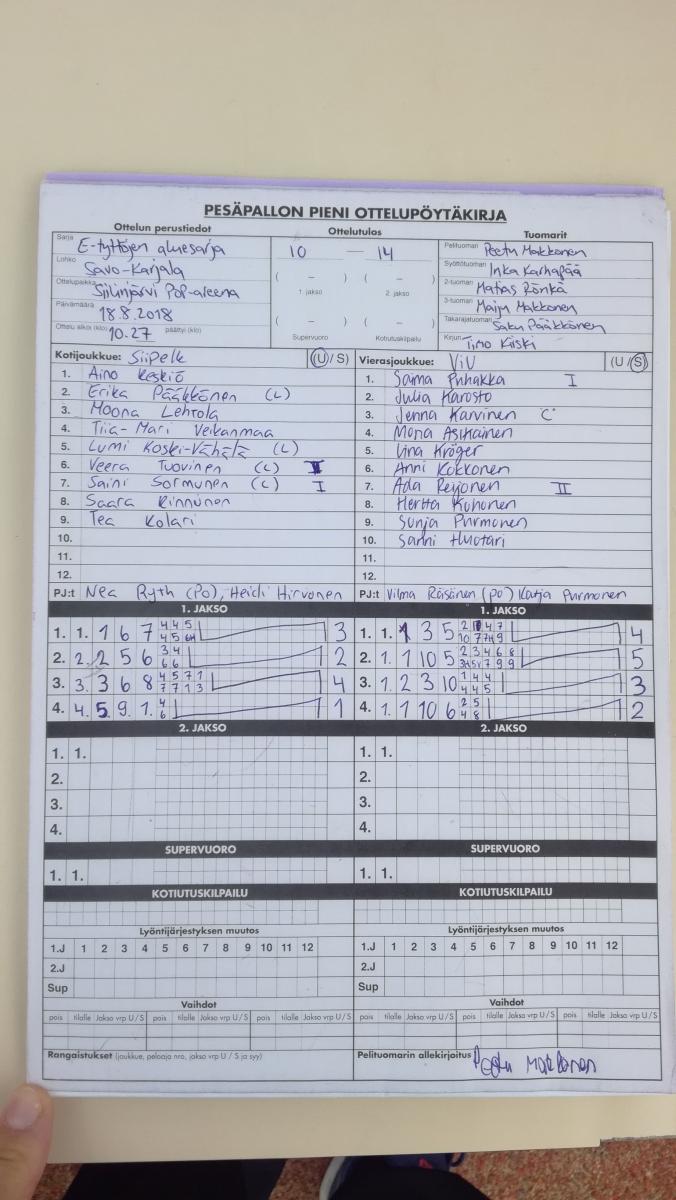 PESÄPALLON PIENI OTTELUPÖYTÄKIRJA
Ottelun perustiedot Ottelutulos Tuomarit
Sarja E-tyttöjen aluesarja
Lohko Savo-Karjala
Ottelupaikka Siilinjärvi Pop-areena
Päivämäärä 18.8.2018
Ottelu alkoi (klo) 10.27 päättyi (klo)
10 — 14
( – ) ( – )
1. jakso 2. jakso
( – ) ( – )
Supervuoro Kotiutuskilpailu
Pelituomari Peetu Makkonen
Syöttötuomari Inka Karhapää
2-tuomari Matias Rönkä
3-tuomari Maiju Makkonen
Takarajatuomari Saku Pääkkönen
Kirjuri Timo Kiiski
Kotijoukkue: SiiPelk (U / S)
1. Aino Keskiö
2. Erika Pääkkönen (L)
3. Moona Lehtola
4. Tiia-Mari Veikanmaa
5. Lumi Koski-Vähälä (L)
6. Veera Tuovinen (L)
7. Saini Sormunen (L) I
8. Saara Rinnunen
9. Tea Kolari
10.
11.
12.
PJ:t Nea Ryth (PO), Heidi Hirvonen
Vierasjoukkue: ViU (U / S)
1. Saima Puhakka I
2. Julia Karosto
3. Jenna Karvinen C
4. Mona Asikainen
5. Iina Kröger
6. Anni Kokkonen
7. Ada Reijonen II
8. Hertta Kuhonen
9. Sonja Purmonen
10. Sanni Huotari
11.
12.
PJ:t Vilma Räisänen (PO) Katja Purmonen
1. JAKSO
1. 1. 1 6 7 3
2. 2. 2 5 6 2
3. 3. 3 6 8 4
4. 4. 5 9 1. 1
1. JAKSO
1. 1. 1 3 5 4
2. 1. 1 10 5 5
3. 1. 2 3 10 3
4. 1. 1 10 6 2
2. JAKSO
1. 1.
2.
3.
4.
2. JAKSO
1. 1.
2.
3.
4.
SUPERVUORO
1. 1.
SUPERVUORO
1. 1.
KOTIUTUSKILPAILU
KOTIUTUSKILPAILU
Lyöntijärjestyksen muutos
1.J 1 2 3 4 5 6 7 8 9 10 11 12
2.J
Sup
Lyöntijärjestyksen muutos
1.J 1 2 3 4 5 6 7 8 9 10 11 12
2.J
Sup
Vaihdot
pois tilalle Jakso vrp U / S pois tilalle Jakso vrp U / S pois tilalle Jakso vrp U / S
Vaihdot
pois tilalle Jakso vrp U / S pois tilalle Jakso vrp U / S pois tilalle Jakso vrp U / S
Rangaistukset (joukkue, pelaaja nro, jakso vrp U / S ja syy)
Pelituomarin allekirjoitus Peetu Makkonen